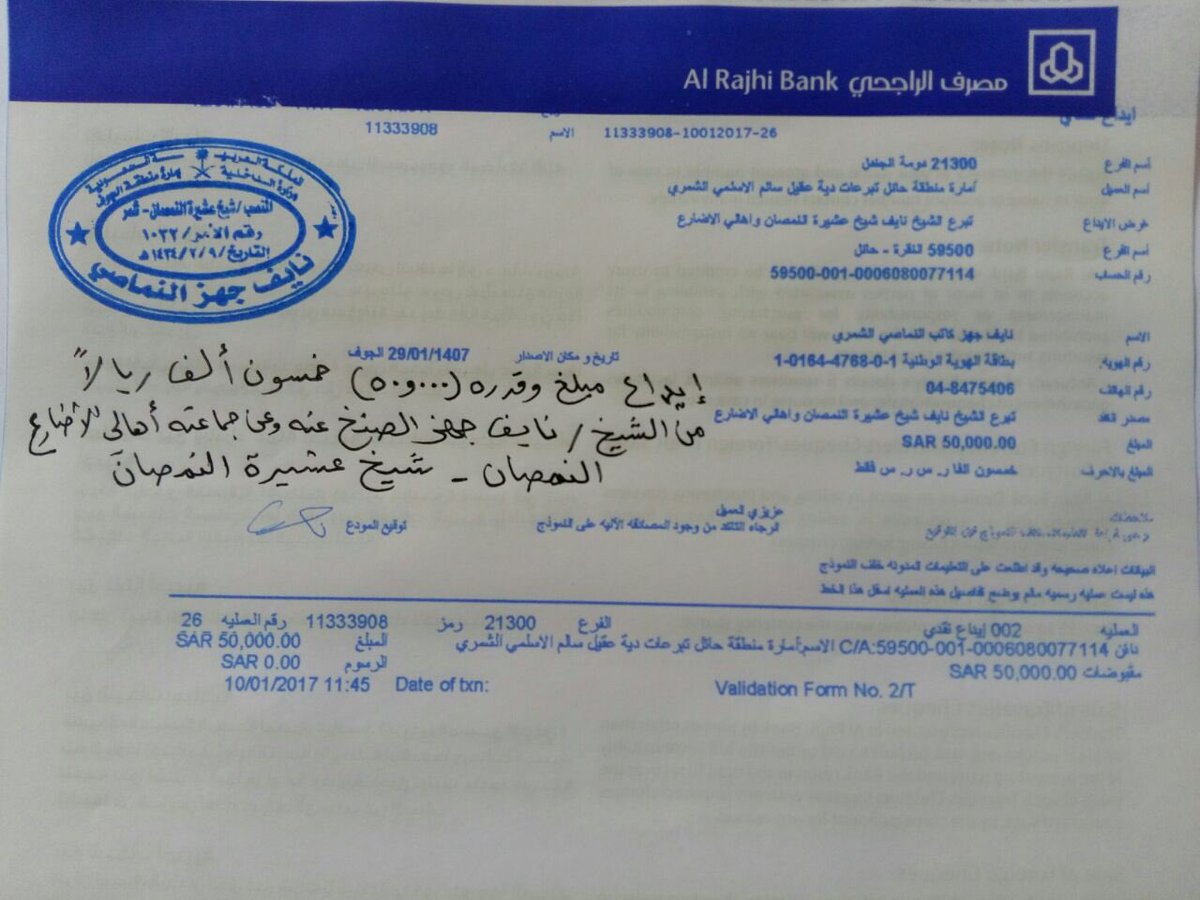 مصرف الراجحي Al Rajhi Bank
11333908-10012017-26 الاسم 11333908
اسم الفرع 21300 دومة الجندل
اسم العميل أمارة منطقة حائل تبرعات دية عقيل سالم الاسلمي الشمري
غرض الايداع تبرع الشيخ نايف شيخ عشيرة النمصان واهالي الاضارع
اسم الفرع 59500 النقرة - حائل
رقم الحساب 59500-001-0006080077114
المملكة العربية السعودية
وزارة الداخلية إمارة منطقة الجوف
المنصب / شيخ عشيرة النمصان - شمر
رقم الأمر / ١٠٣٢
التاريخ / ٩ / ٢ / ١٤٣٤هـ
نايف جهز النماصي
الاسم نايف جهز كاتب النماصي الشمري
رقم الهوية. بطاقة الهوية الوطنية 1-0164-4768-0-1 تاريخ و مكان الاصدار 29/01/1407 الجوف
رقم الهاتف 04-8475406
مصدر النقد تبرع الشيخ نايف شيخ عشيرة النمصان واهالي الاضارع
المبلغ SAR 50,000.00
المبلغ بالاحرف خمسون الفا ر س ر س فقط
إيداع مبلغ وقدره (٥٠٠٠٠) خمسون ألف ريالاً
من الشيخ / نايف جهز عنه وعن جماعته أهالي الأضارع
النمصان - شيخ عشيرة النمصان
ملاحظات
عزيزي العميل
الرجاء التاكد من وجود المصادقه الآليه على النموذج توقيع المودع
البيانات اعلاه صحيحه وقد اطلعت على التعليمات المدونه خلف النموذج
هذه ليست عمليه رسميه مالم يوضح تفاصيل هذه العمليه اسفل هذا الخط
العمليه 002 إيداع نقدي الفرع 21300 رمز 11333908 رقم العمليه 26
دائن C/A:59500-001-0006080077114 الاسم:أمارة منطقة حائل تبرعات دية عقيل سالم الاسلمي الشمري المبلغ SAR 50,000.00
مقبوضات SAR 50,000.00 الرسوم SAR 0.00
Validation Form No. 2/T Date of txn: 10/01/2017 11:45